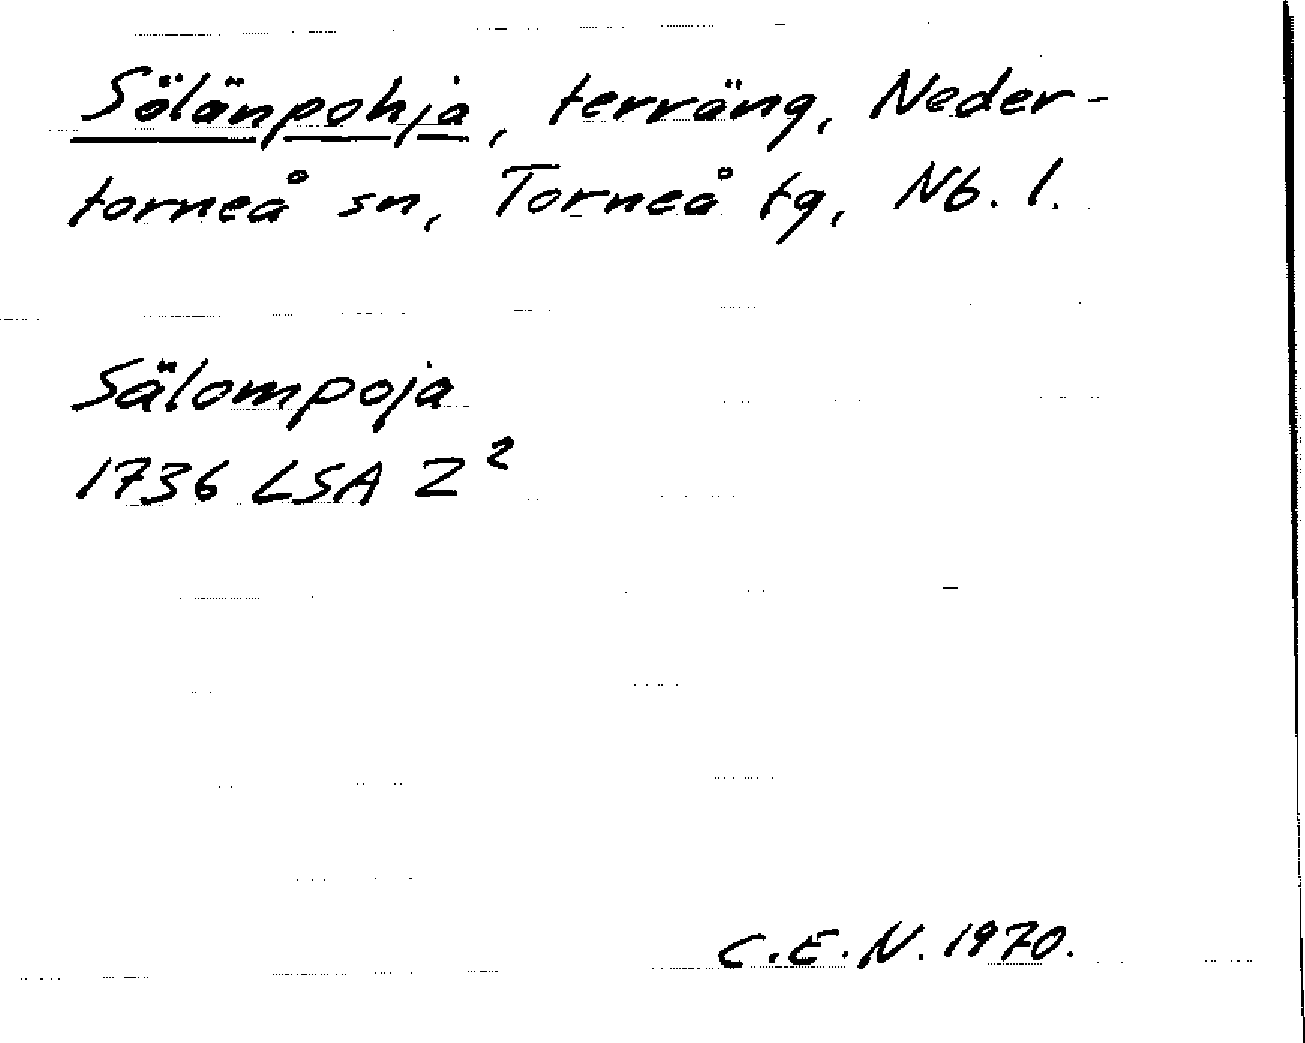 Sölänpohja, terräng, Neder-
torneå sn, Torneå tg, Nb. l.
Sälompoja
1736 LSA Z²
C.E.N. 1970.